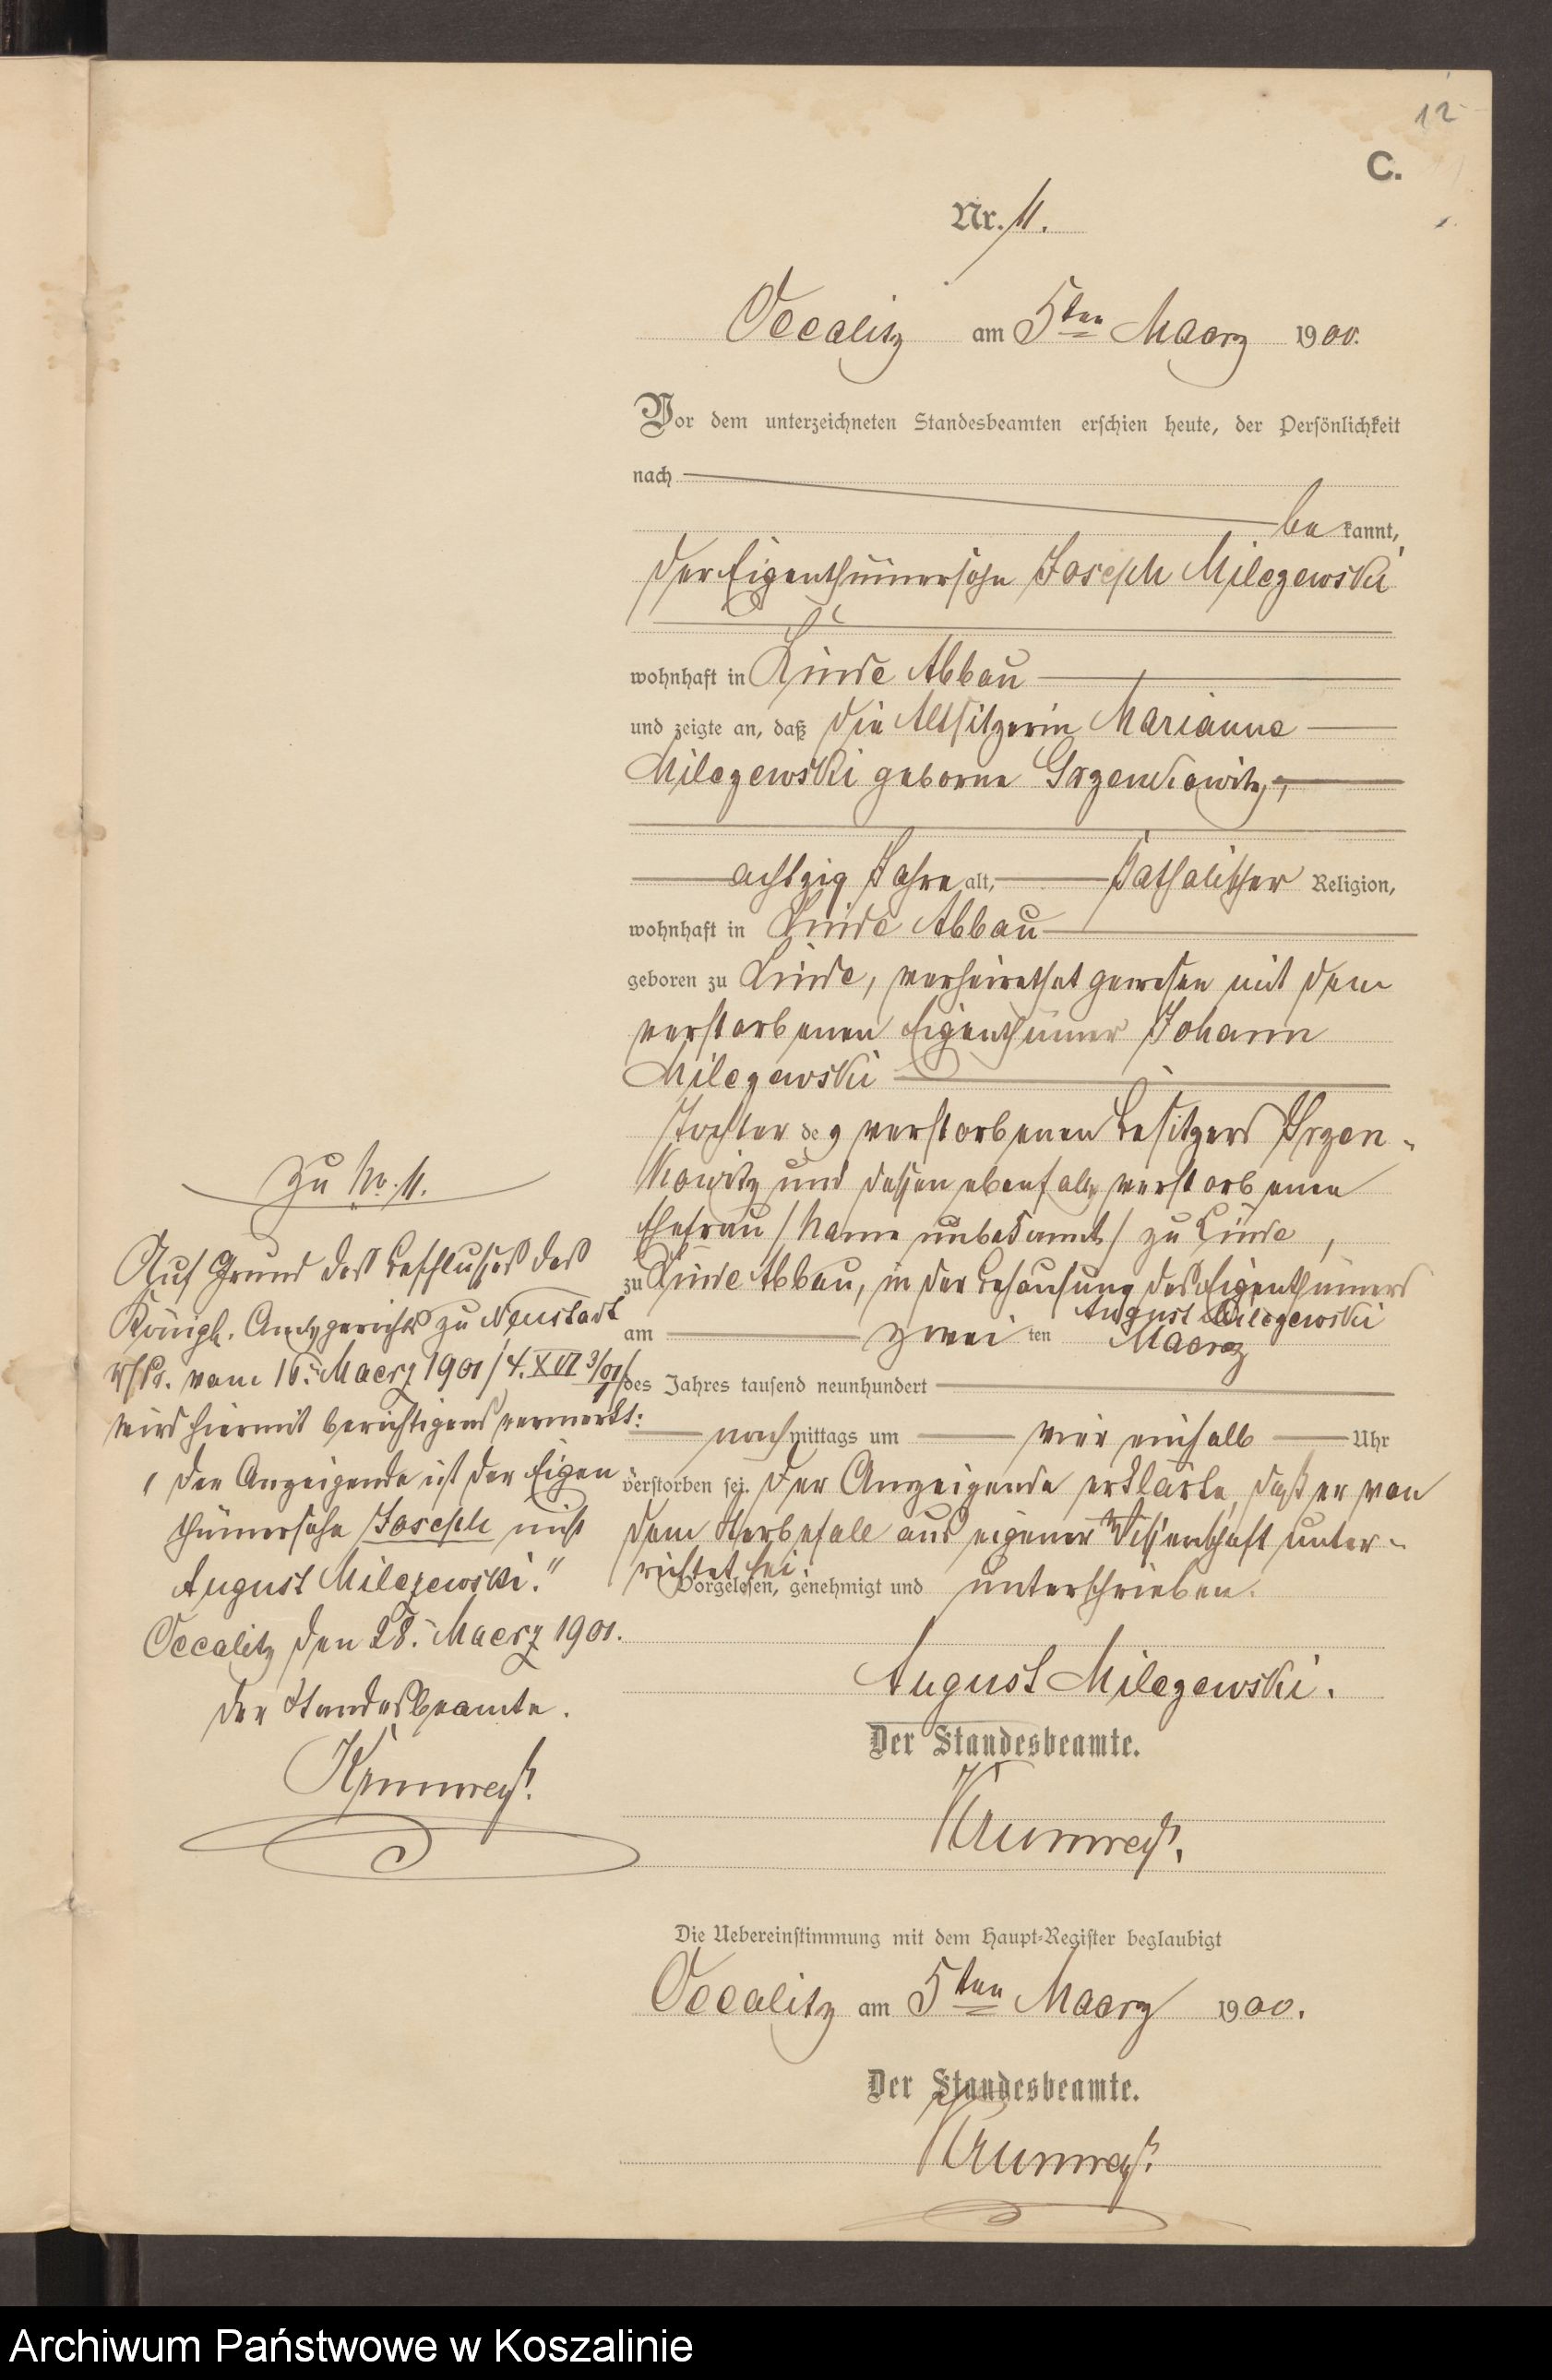 12
C.
Nr. 11.
Occalitz am 5ten Maerz 1900.
Vor dem unterzeichneten Standesbeamten erschien heute, der Persönlichkeit
nach
be kannt,
der Eigenthümersohn Joseph Milczewski
wohnhaft in Linde Abbau
und zeigte an, daß die Altsitzerin Marianna
Milczewski geborne Grzenkowitz,
achtzig Jahre alt, katholischer Religion,
wohnhaft in Linde Abbau
geboren zu Linde, verheirathet gewesen mit dem
verstorbenen Eigenthümer Johann
Milczewski
Tochter des verstorbenen Besitzers Grzen-
kowitz und dessen ebenfalls verstorbenen
Ehefrau /Name unbekannt/ zu Linde,
zu Linde Abbau, in der Behausung des Eigenthümers
August Milczewski
am zwei ten Maerz
des Jahres tausend neunhundert
nachmittags um vier einhalb Uhr
verstorben sei. Der Anzeigende erklärte, daß er von
dem Sterbefall aus eigener Wissenschaft unter-
richtet sei.
Vorgelesen, genehmigt und unterschrieben.
August Milczewski.
Der Standesbeamte.
Krumrey.
Die Uebereinstimmung mit dem Haupt-Register beglaubigt
Occalitz am 5ten Maerz 1900.
Der Standesbeamte.
Krumrey.
Zu No. 11.
Auf Grund des Beschlusses des
Königl. Amtsgerichts zu Neustadt
W/Pr. vom 16. Maerz 1901 /4. XVII 3/01/
wird hiermit berichtigend vermerkt:
"Der Anzeigende ist der Eigen-
thümersohn Joseph nicht
August Milczewski."
Occalitz den 28. Maerz 1901.
Der Standesbeamte.
Krumrey.
Archiwum Państwowe w Koszalinie